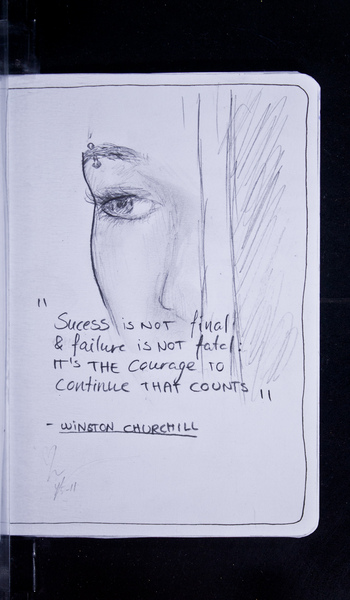 "
Sucess is NOT final
& failure is NOT fatal:
IT'S THE Courage TO
Continue THAT COUNTS "
- WINSTON CHURCHILL